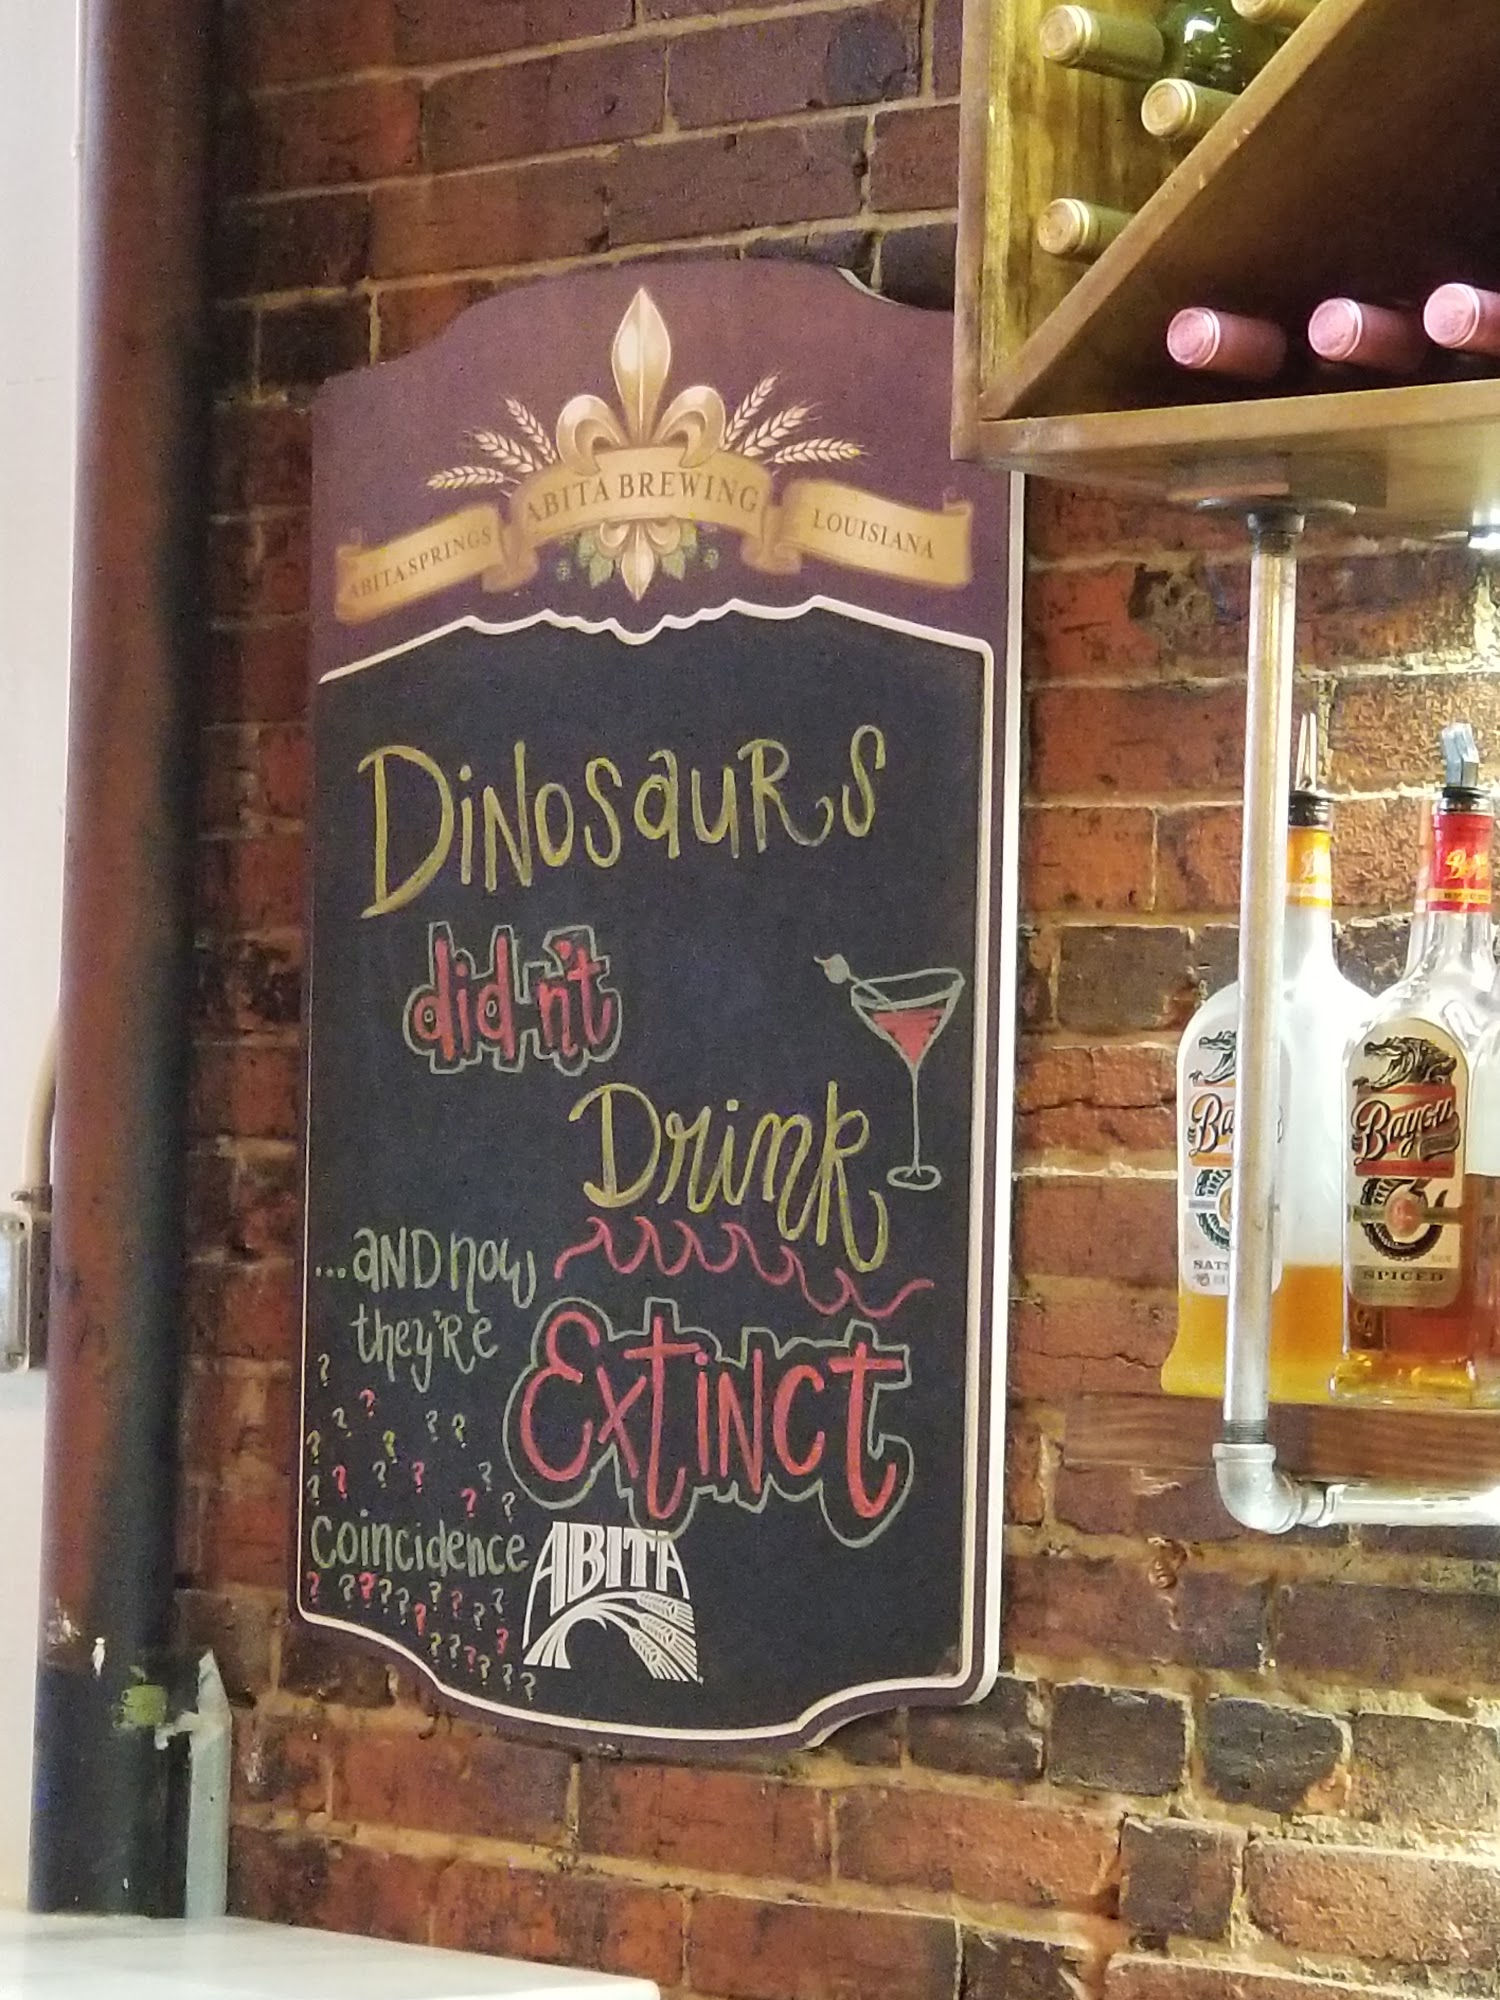 ABITA BREWING
ABITA SPRINGS
LOUISIANA
Dinosaurs
did-n't
Drink
...and now
they're
Extinct
? ? ? ? ? ? ? ? ? ? ? ? ? ?
coincidence
? ? ? ? ? ? ? ? ? ? ? ? ? ? ? ? ? ?
ABITA
Bayou
SPICED